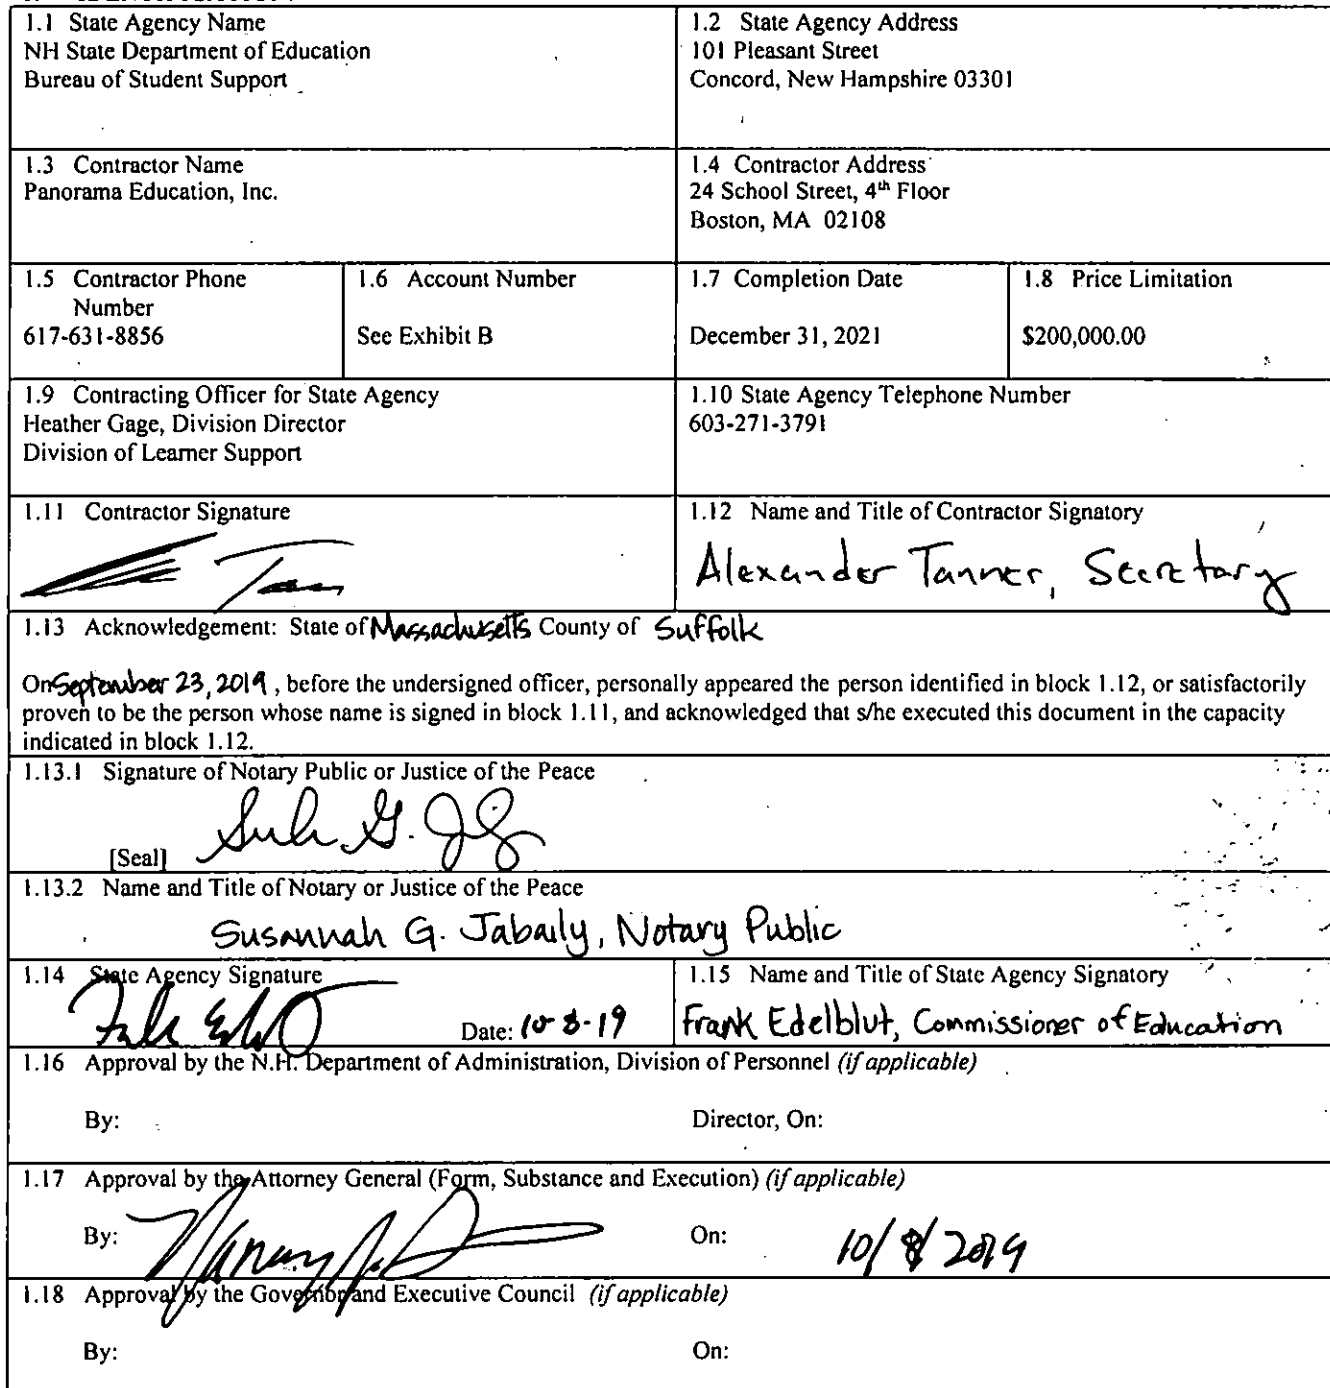 1.1 State Agency Name
NH State Department of Education
Bureau of Student Support
1.2 State Agency Address
101 Pleasant Street
Concord, New Hampshire 03301
1.3 Contractor Name
Panorama Education, Inc.
1.4 Contractor Address
24 School Street, 4th Floor
Boston, MA 02108
1.5 Contractor Phone
Number
617-631-8856
1.6 Account Number
See Exhibit B
1.7 Completion Date
December 31, 2021
1.8 Price Limitation
$200,000.00
1.9 Contracting Officer for State Agency
Heather Gage, Division Director
Division of Learner Support
1.10 State Agency Telephone Number
603-271-3791
1.11 Contractor Signature
1.12 Name and Title of Contractor Signatory
Alexander Tanner, Secretary
1.13 Acknowledgement: State of Massachusetts County of Suffolk
On September 23, 2019, before the undersigned officer, personally appeared the person identified in block 1.12, or satisfactorily
proven to be the person whose name is signed in block 1.11, and acknowledged that s/he executed this document in the capacity
indicated in block 1.12.
1.13.1 Signature of Notary Public or Justice of the Peace
[Seal]
1.13.2 Name and Title of Notary or Justice of the Peace
Susannah G. Jabaily, Notary Public
1.14 State Agency Signature
Date: 10-8-19
1.15 Name and Title of State Agency Signatory
Frank Edelblut, Commissioner of Education
1.16 Approval by the N.H. Department of Administration, Division of Personnel (if applicable)
By:
Director, On:
1.17 Approval by the Attorney General (Form, Substance and Execution) (if applicable)
By:
On: 10/8/2019
1.18 Approval by the Governor and Executive Council (if applicable)
By:
On: